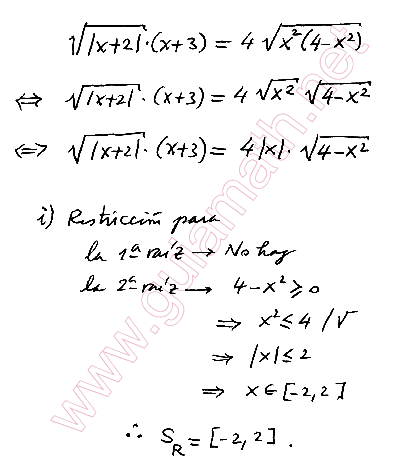 √|x+2| · (x+3) = 4 √x²(4-x²)
⇔ √|x+2| · (x+3) = 4 √x² √4-x²
⇔ √|x+2| · (x+3) = 4|x| · √4-x²
i) Restricción para
la 1ª raíz → No hay
la 2ª raíz → 4-x² ⩾ 0
⇒ x² ≤ 4 /√
⇒ |x| ≤ 2
⇒ x ∈ [-2, 2]
∴ S_R = [-2, 2].
www.guiamath.net